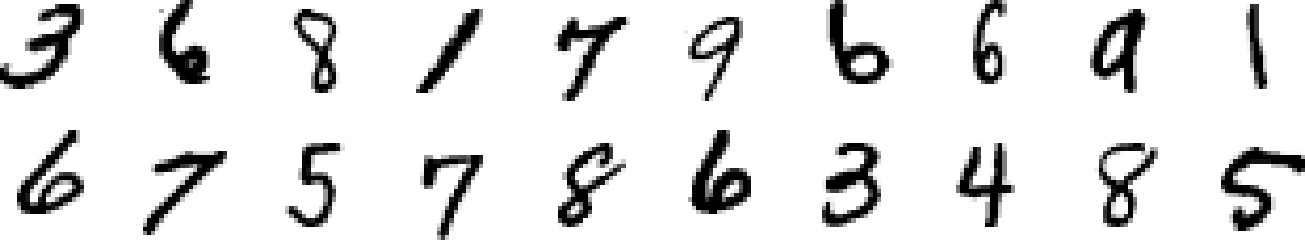 3 6 8 1 7 9 6 6 9 1
6 7 5 7 8 6 3 4 8 5